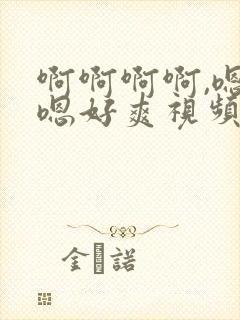 啊啊啊啊,嗯
嗯好爽視頻
金 諾